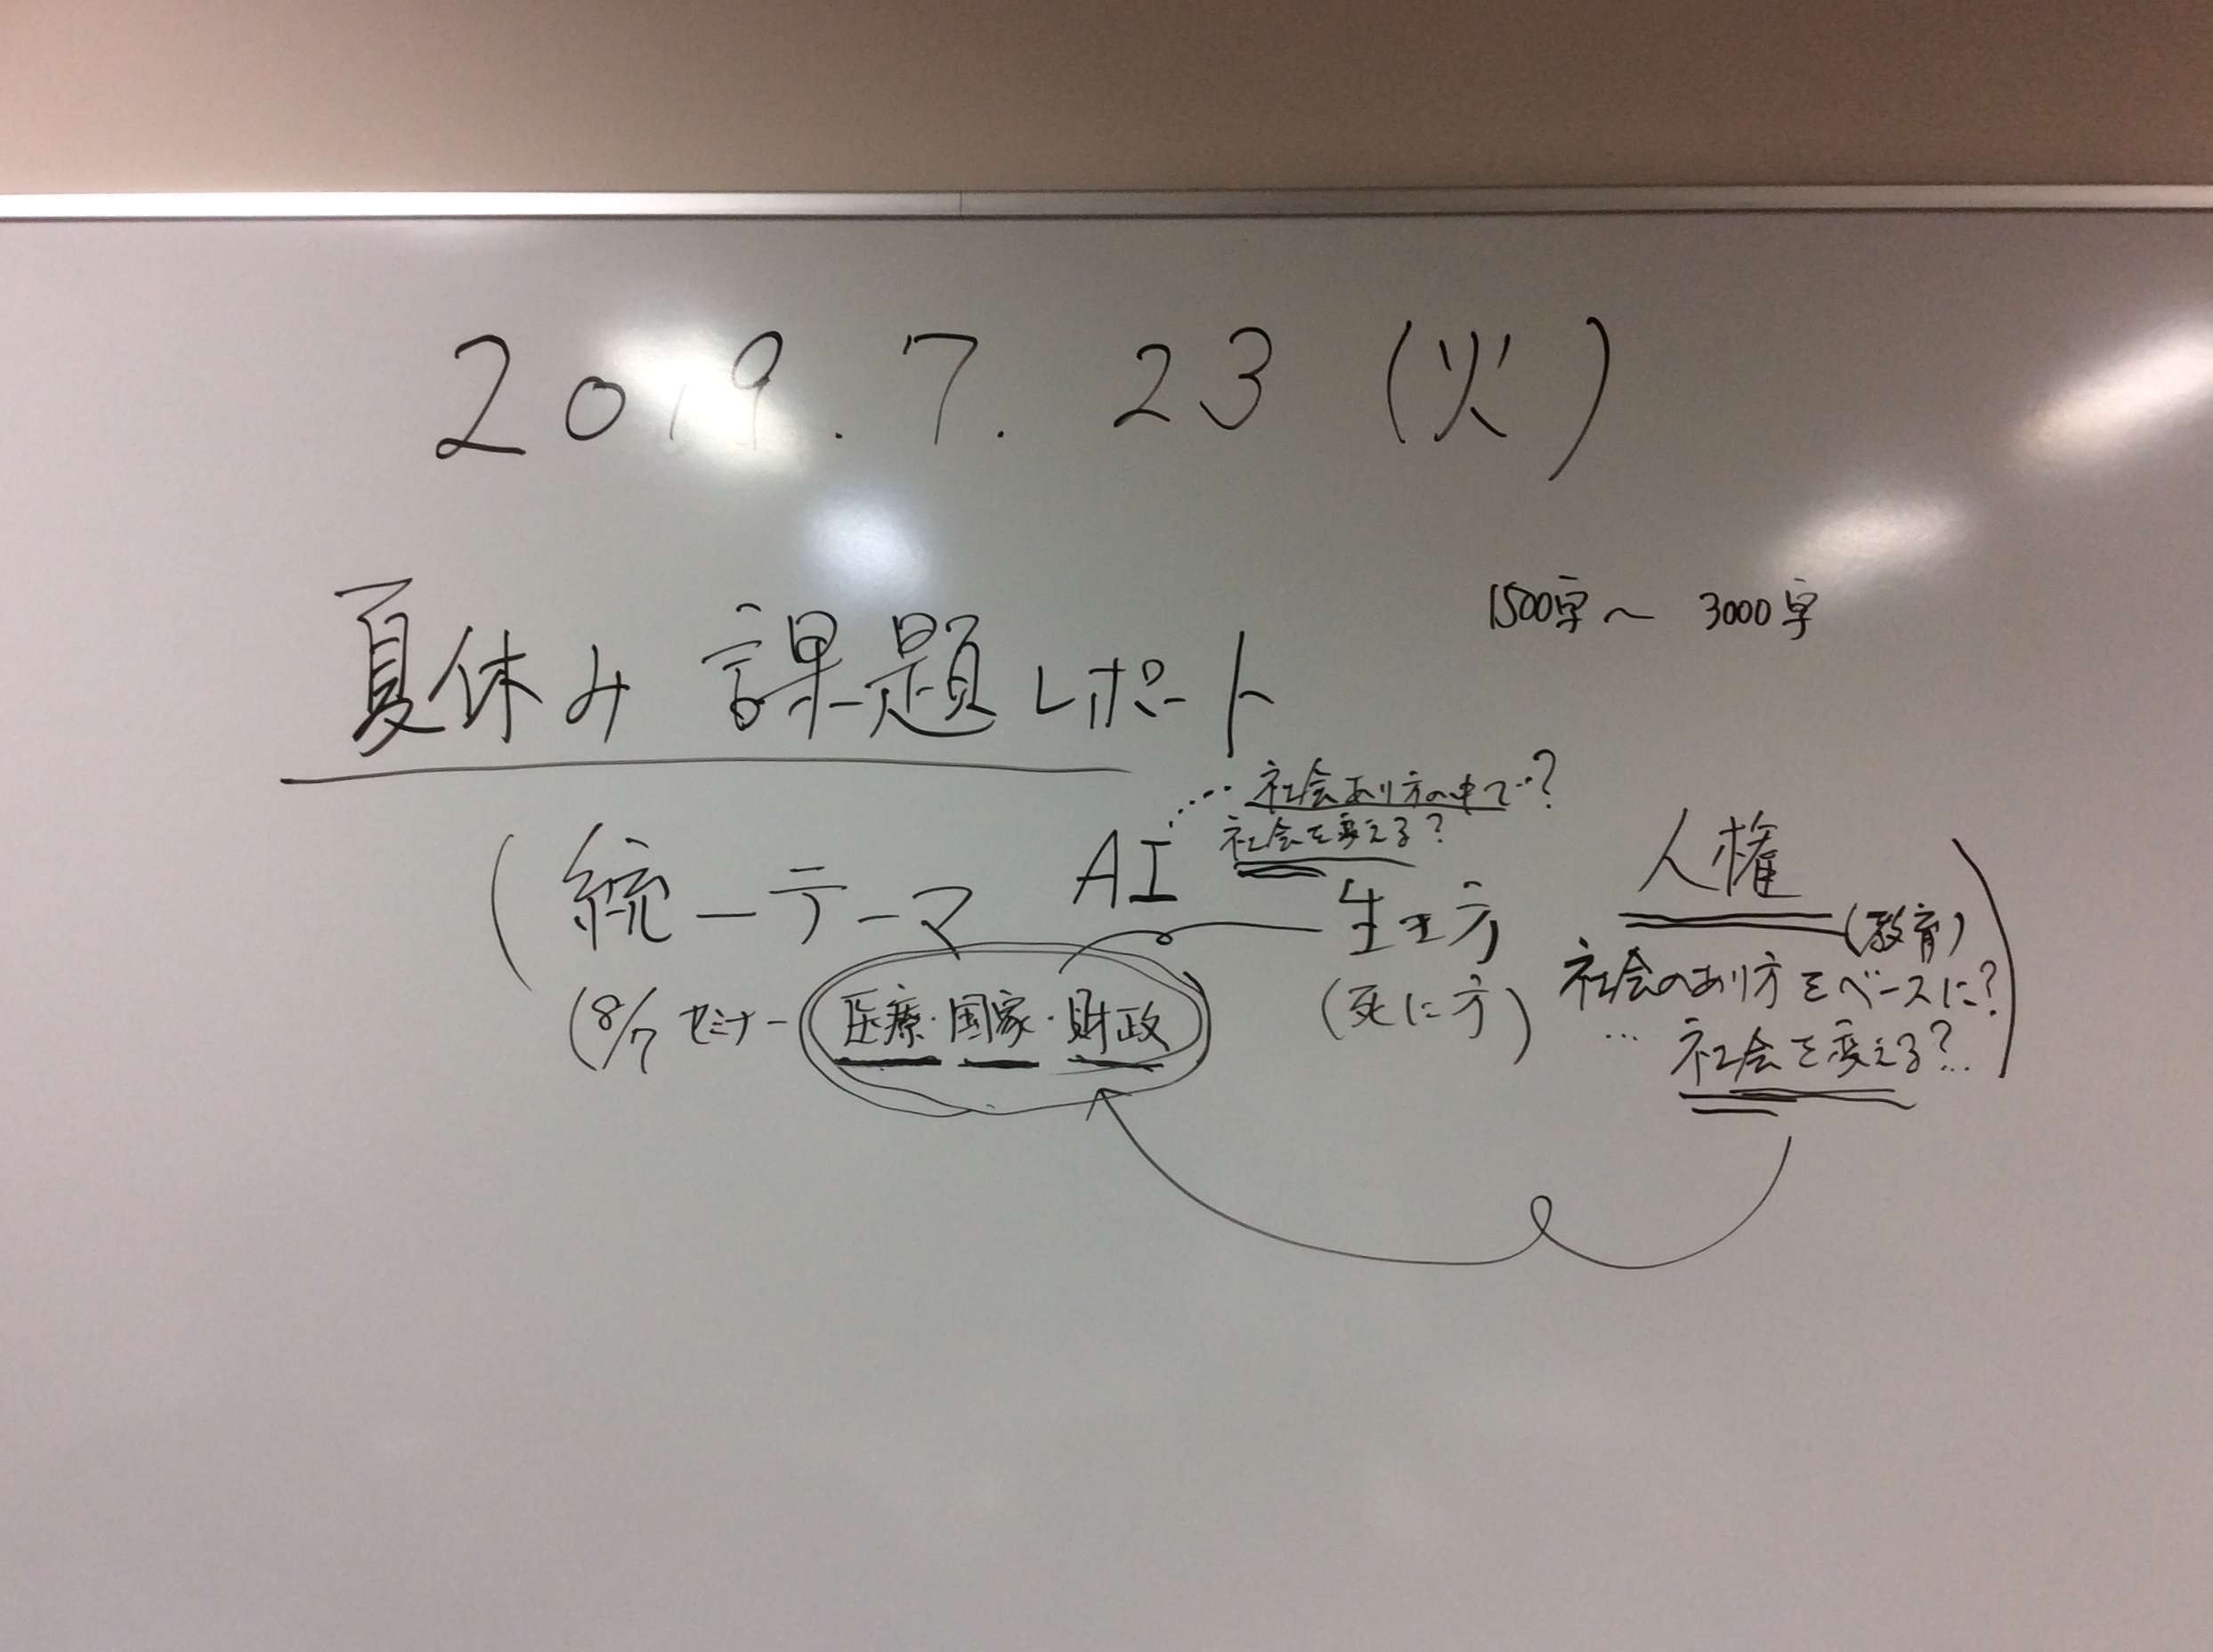 2019.7.23(火)
1500字〜3000字
夏休み課題レポート
社会あり方の中で…?
社会を変える?
(統一テーマ AI 生き方 人権)
(教育)
(8/7 セミナー 医療・国家・財政
(死に方)
社会のあり方をベースに?
…社会を変える?…